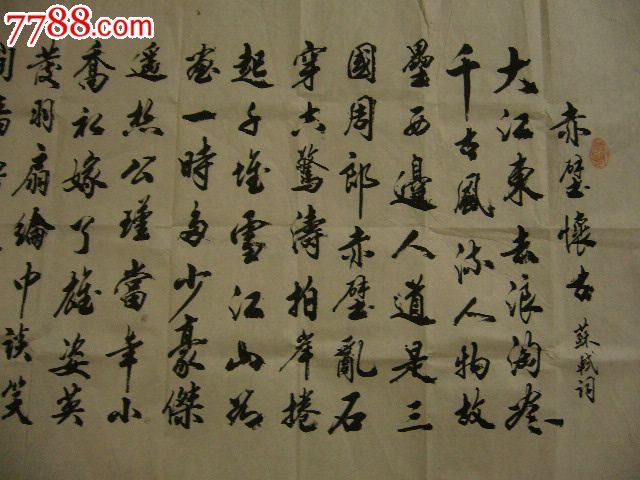 7788.com
赤壁懷古 蘇軾詞
大江東去浪淘盡
千古風流人物故
壘西邊人道是三
國周郎赤壁亂石
穿空驚濤拍岸捲
起千堆雪江山如
畫一時多少豪傑
遥想公瑾當年小
喬初嫁了雄姿英
發羽扇綸巾談笑